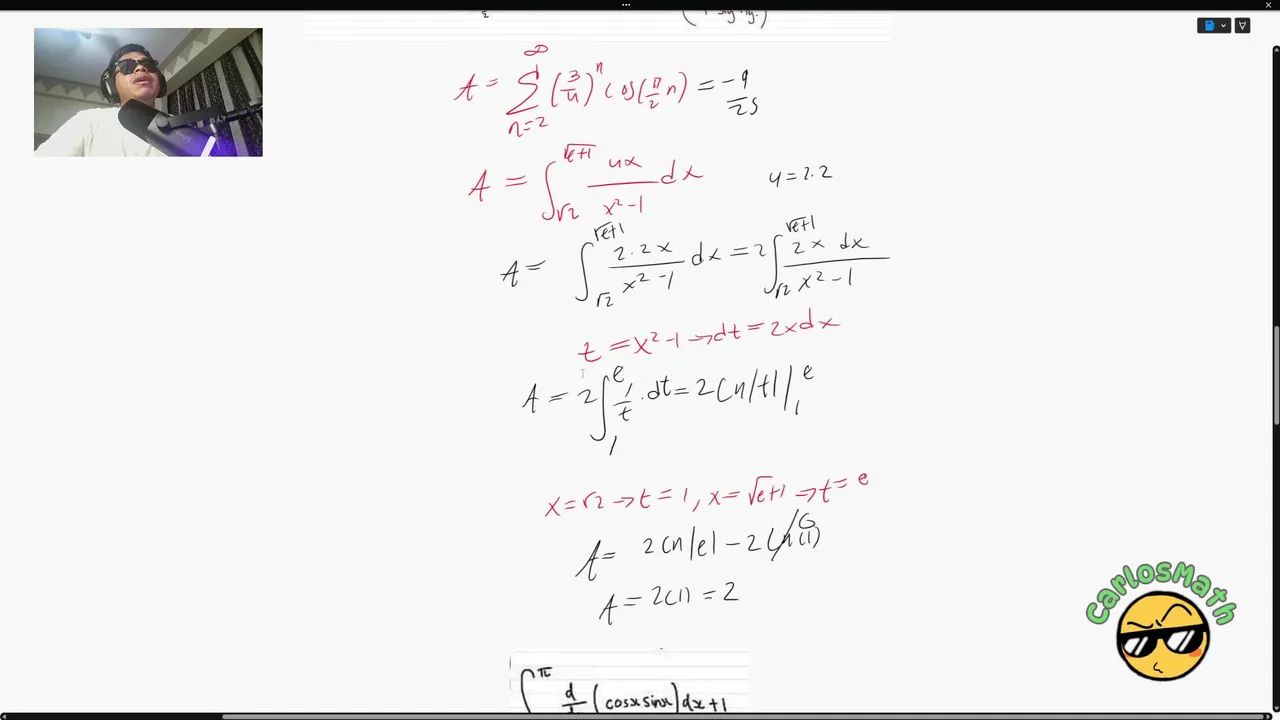 A = ∑_{n=2}^{∞} (3/4)^n cos(π/2 n) = -9/25
A = ∫_{√2}^{√e+1} 4x/(x²-1) dx    4=2.2
A = ∫_{√2}^{√e+1} 2.2x/(x²-1) dx = 2 ∫_{√2}^{√e+1} 2x dx/(x²-1)
t = x²-1 → dt = 2x dx
A = 2 ∫_{1}^{e} 1/t . dt = 2 Ln|t| |_{1}^{e}
x=√2 → t=1, x=√e+1 → t=e
A = 2 Ln|e| - 2 Ln(1) 0
A = 2(1) = 2
CarlosMath
∫^{π} d/ (cosx sinx) dx + 1